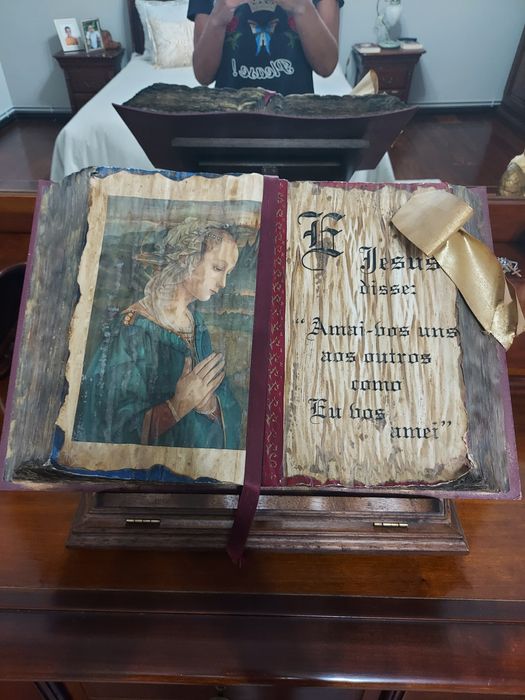 Please!
E Jesus
disse:
“Amai-vos uns
aos outros
como
Eu vos
amei”